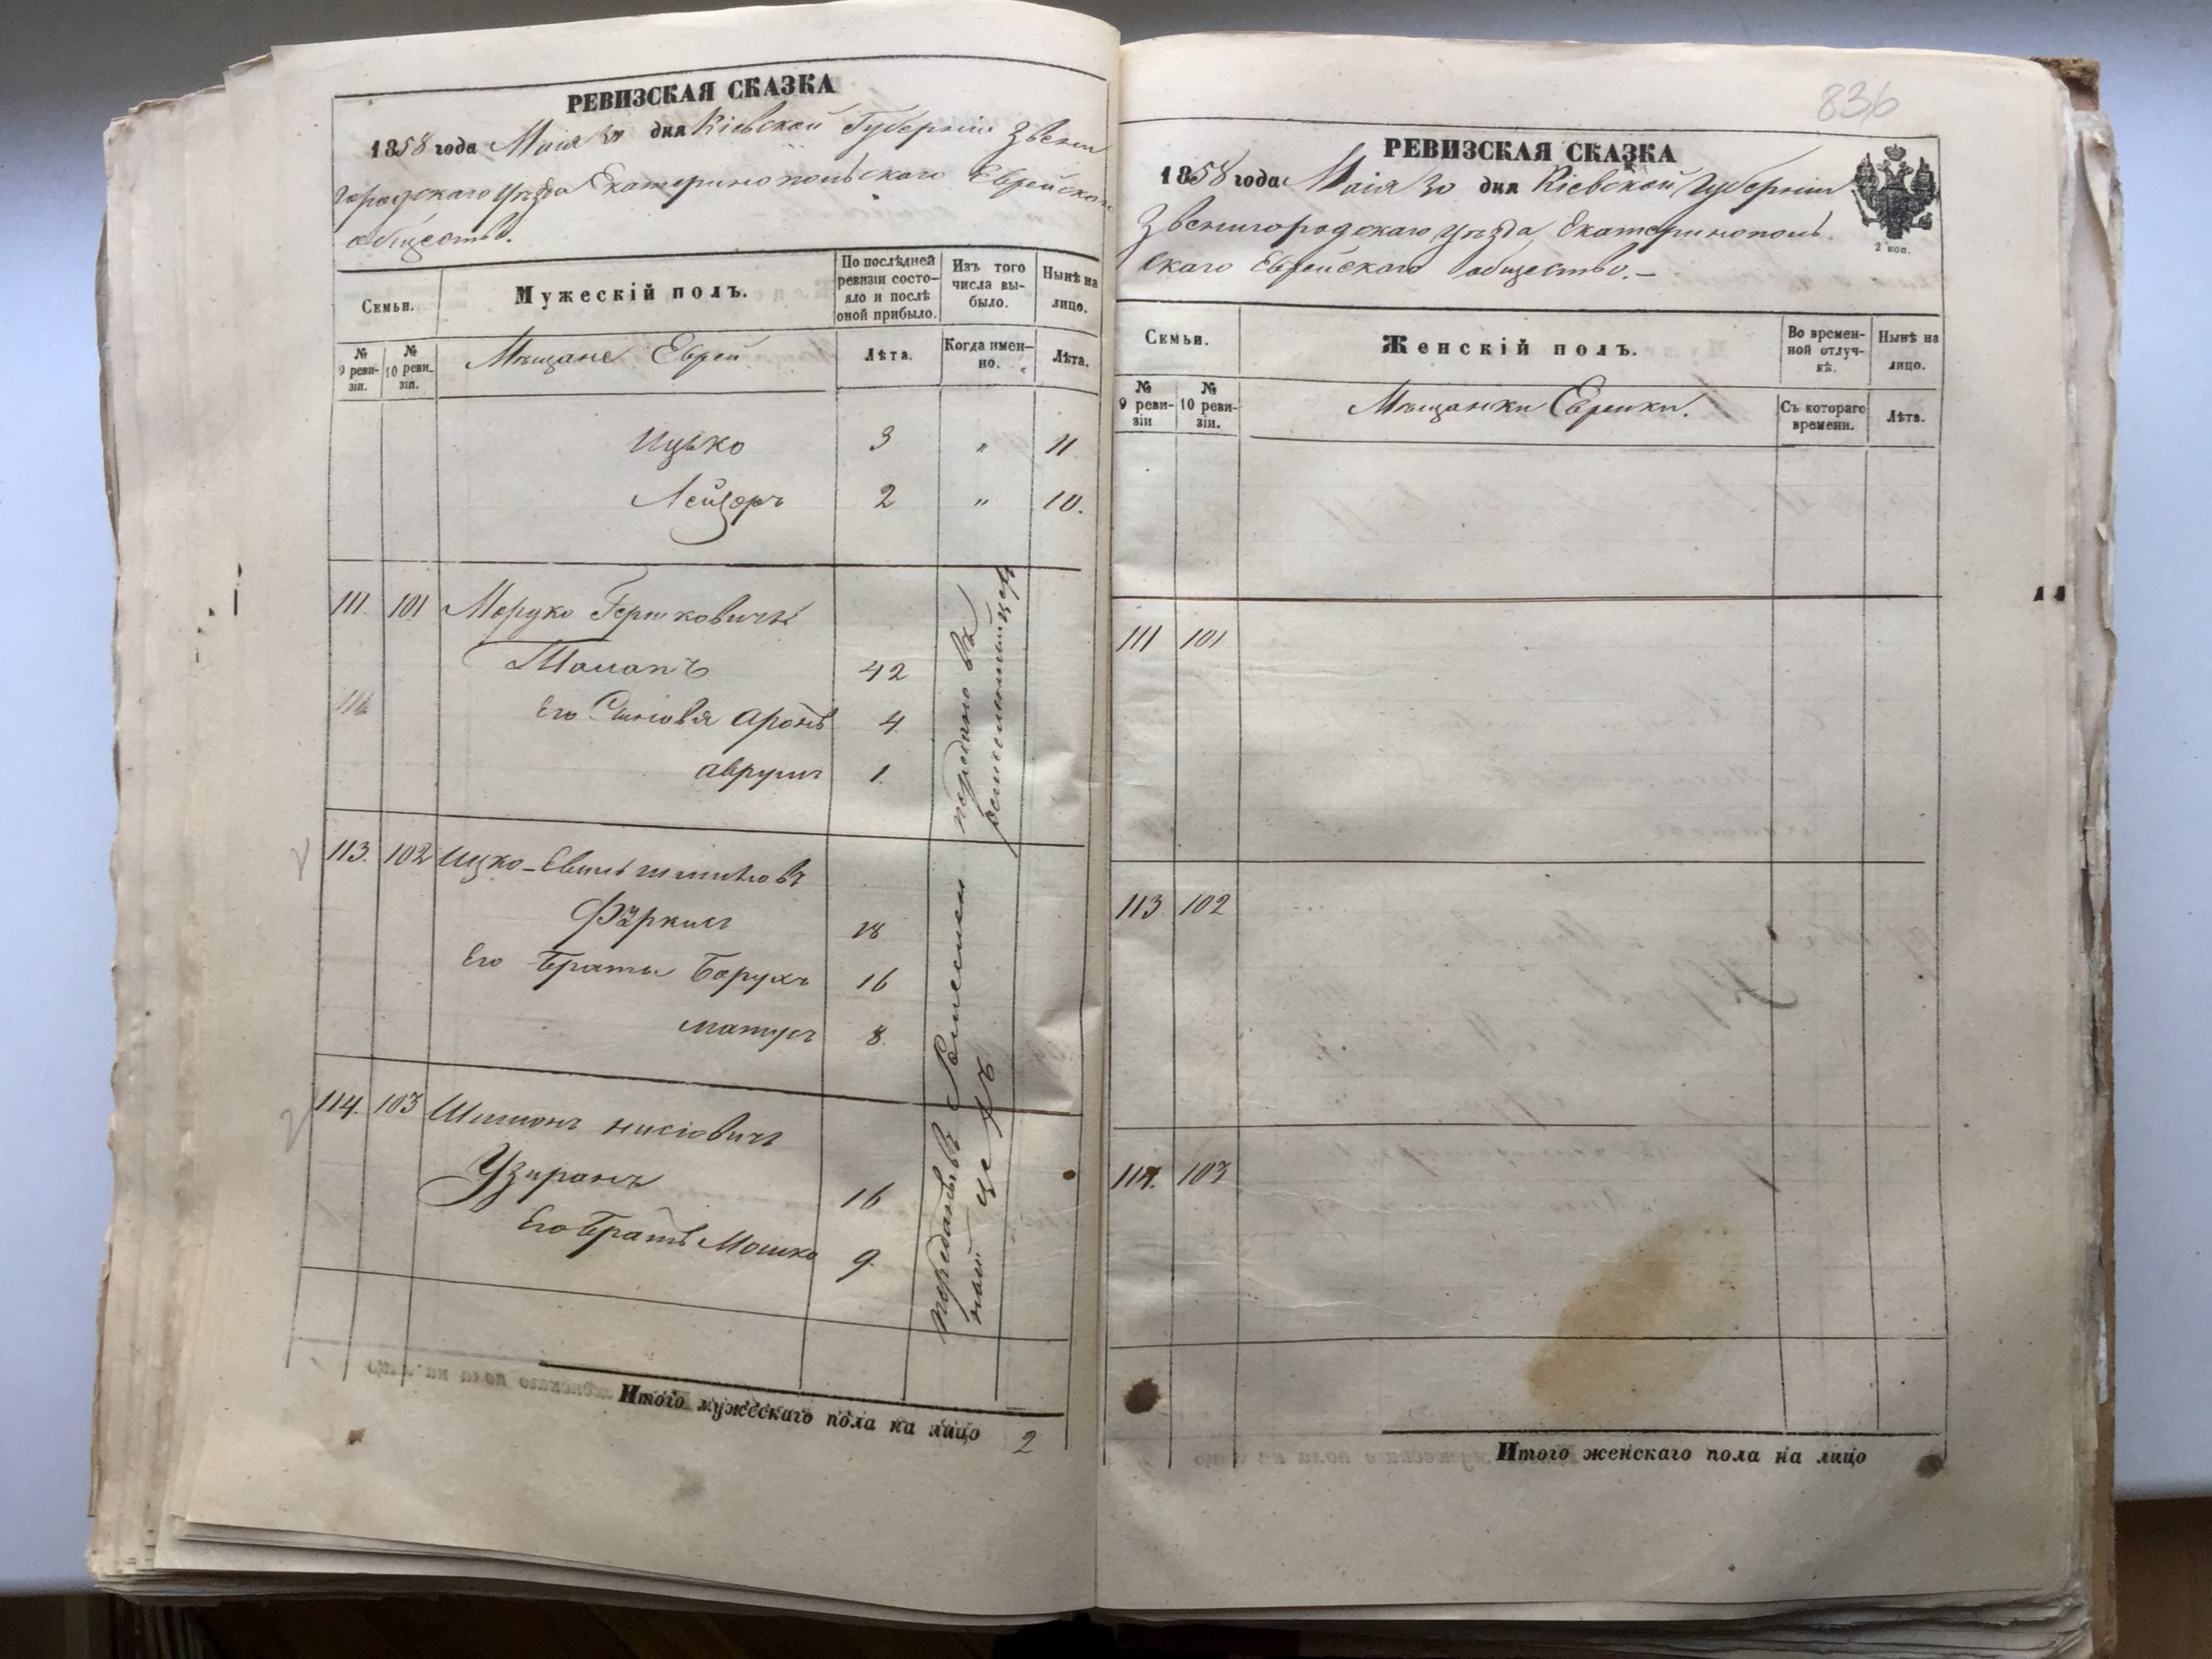 РЕВИЗСКАЯ СКАЗКА
1858 года Маія 30 дня Кіевской Губерніи Звени
городскаго уѣзда Екатеринопольскаго Еврейскаго
общества.
Семьи.
Мужескій полъ.
По послѣдней ревизіи состояло и послѣ оной прибыло.
Изъ того числа выбыло.
Нынѣ на лицо.
№ 9 ревизіи.
№ 10 ревизіи.
Мѣщане Евреи
Лѣта.
Когда именно.
Лѣта.
Ицько 3 " 11
Лейзоръ 2 " 10.
111. 101 Мордко Гершковичъ
42
Его Сыновья Аронъ 4
Аврумъ 1.
113. 102 Ицко-
18
Его Братья Борухъ 16
Матусъ 8.
передано въ
114. 103 Шимонъ Нисіовичъ
Узиранъ 16
Его Братъ Мошко 9.
Итого мужескаго пола на лицо 2
836
РЕВИЗСКАЯ СКАЗКА
1858 года Маія 30 дня Кіевской Губерніи
Звенигородскаго уѣзда Екатеринополь
скаго Еврейскаго общества.-
2 коп.
Семьи.
Женскій полъ.
Во временной отлучкѣ.
Нынѣ на лицо.
№ 9 ревизіи
№ 10 ревизіи.
Мѣщанки Еврейки.
Съ котораго времени.
Лѣта.
111 101
113 102
114. 103
Итого женскаго пола на лицо